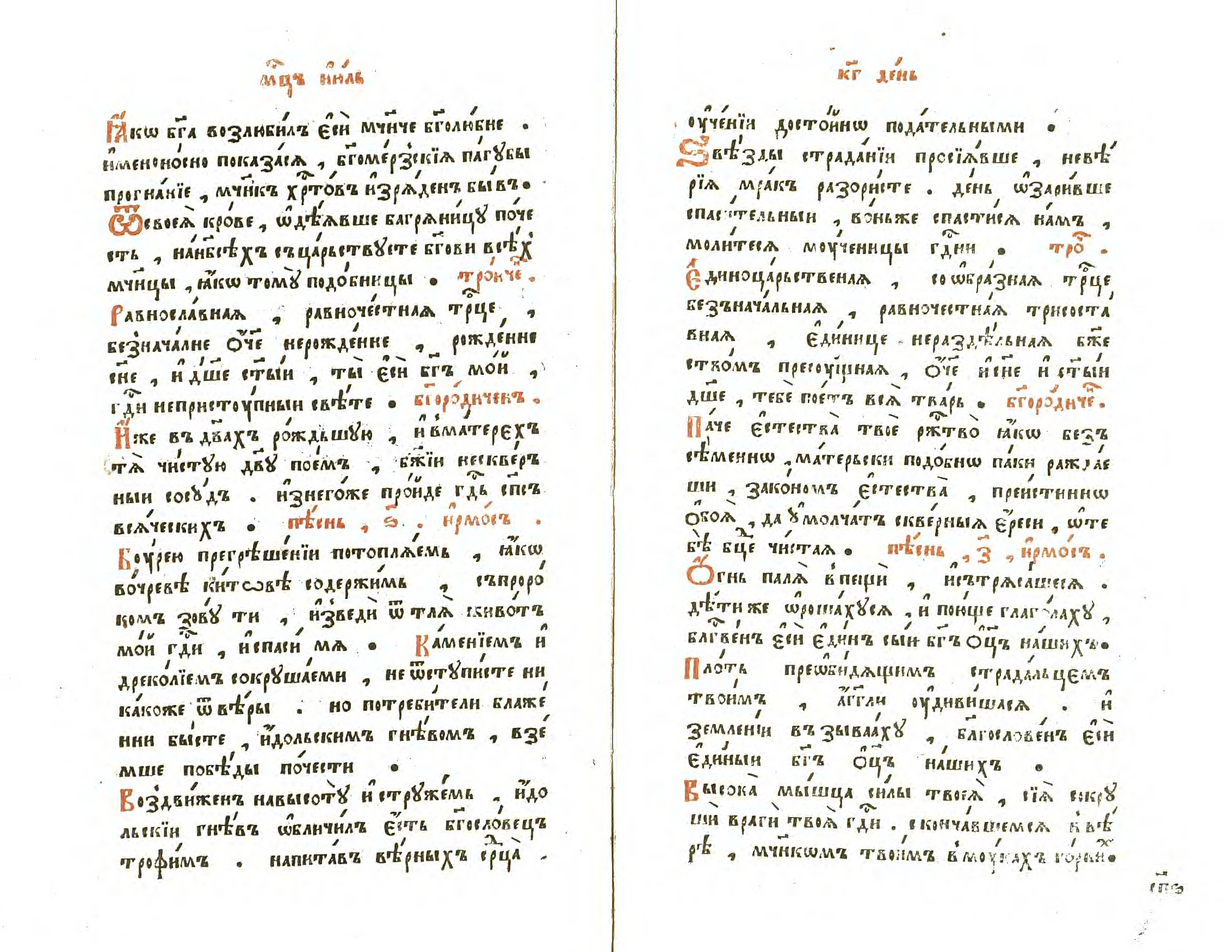 мц҃ъ і҆ю́ль
Ꙗ҆́кѡ бг҃а возлюби́лъ є҆сѝ мч҃ниче бг҃олю́бне .
и҆меноно́сно показа́сѧ , бг҃оме́рзскїѧ па́гꙋбы
прогна́нїе , мч҃нкъ хрⷭ҇то́въ и҆зрѧ́денъ бы́въ .
Ѿ своеѧ̀ кро́ве , ѡ҆дѣ́ѧвше багрѧни́цꙋ поче́
сть , на́нбсѣ́хъ съца́рьствꙋете бг҃ови всѣ́х
мч҃ницы , ꙗ҆́кѡ томꙋ̀ подо́бницы . тро́иче .
Равносла́внаѧ , равноче́стнаѧ трⷪ҇це ,
безнача́лне ѻ҆́ч҃е нерожде́нне , рожде́нне
сн҃е , и҆ дш҃е ст҃ы́и , ты̀ є҆сѝ бг҃ъ мо́й ,
гдⷭ҇и непристоу́пныи свѣ́те . бг҃оро́диченъ .
И҆́же въ два́хъ ро́ждьшꙋю , и҆ в̾ма́терехъ
тѧ̀ чи́стꙋю дв҃ꙋ пое́мъ , бж҃їи нескве́р
ныи сосꙋ́дъ . и҆знего́же про́йде гдⷭ҇ь сп҃съ
всѧ́ческихъ . пѣ́снь , ѕ҃ . і҆рмо́съ .
Боу́рею прегрѣше́нїи потоплѧ́емь , ꙗ҆́кѡ
во́чревѣ ки́товѣ содержи́мь , съпроро́
комъ зовꙋ́ ти , и҆зведѝ ѿ тлѧ̀ живо́тъ
мо́й гдⷭ҇и , и҆спаси́ мѧ . Ка́менїемъ и҆
дреко́лїемъ сокрꙋша́еми , не ѿстꙋпи́сте ни
ка́коже ѿ вѣ́ры . но потреби́тели блаже́
нни бы́сте , и҆́дольскимъ гнѣ́вомъ , взе́
мше побѣ́ды по́чести .
Воздви́женъ навысотꙋ̀ и҆ стрꙋже́мь , и҆́до
льскїи гнѣ́въ ѡ҆бличи́лъ є҆́сть бг҃осло́вецъ
трофи́мъ . напита́въ вѣ́рныхъ срⷣца̀ .
к҃г де́нь
оу҆че́нїи досто́йнѡ пода́тельными .
Ѕвѣ́зды страда́нїи просїѧ́вше , невѣ́
рїѧ мра́къ разори́сте . де́нь ѡ҆зари́вше
спаси́тельныи , во́ньже спасти́сѧ на́мъ ,
моли́тесѧ моу́ченицы гдⷭ҇ни . тро́ .
Е҆диноца́рьственаѧ , соѡбра́знаѧ трⷪ҇це
безънача́льнаѧ , равноче́стнаѧ трисоста́
внаѧ , є҆ди́нице нераздѣ́льнаѧ бж҃е
ство́мъ пресоу́щнаѧ , ѻ҆́ч҃е и҆ сн҃е и҆ ст҃ы́и
дш҃е , тебѐ пое́тъ всѧ̀ тва́рь . бг҃оро́диче .
Па́че є҆стества̀ твоѐ ржⷭ҇тво̀ ꙗ҆́кѡ безъ
сѣ́менно , ма́терьски подо́бнѡ па́ки ражда́е
ши , зако́номъ є҆стества̀ , преи́стиннѡ
ѻ҆боѧ̀ , да ᲂу҆молча́тъ скве́рныѧ є҆́реси , ѡ҆те
бѣ̀ бц҃е чи́стаѧ . пѣ́снь , з҃ , і҆рмо́съ .
Ѻ҆́гнь палѧ̀ в̾пещѝ , и҆сътрѧса́шесѧ .
дѣ́тиже ѡ҆роша́хꙋсѧ , и҆ пою́ще глаго́лахꙋ ,
благⷭ҇ве́нъ є҆сѝ є҆ди́нъ сы́и бг҃ъ ѻ҆ц҃ъ на́шихъ .
Пло́ть преѡби́дѧщимъ страда́льцемъ
твои́мъ , а҆́гг҃ли оу҆диви́шасѧ . и҆
земле́нїи въ зыва́ахꙋ , благослове́нъ є҆сѝ
є҆ди́ныи бг҃ъ ѻ҆ц҃ъ на́шихъ .
Высока̀ мы́шца си́лы твоеѧ̀ , сїѧ̀ сокрꙋ
шѝ врагѝ твоѧ̀ гдⷭ҇и . сконча́вшемсѧ в̾ вѣ́
рѣ , мч҃нкѡмъ твои́мъ в̾ моу́кахъ го́рьки .
сп҃ѕ